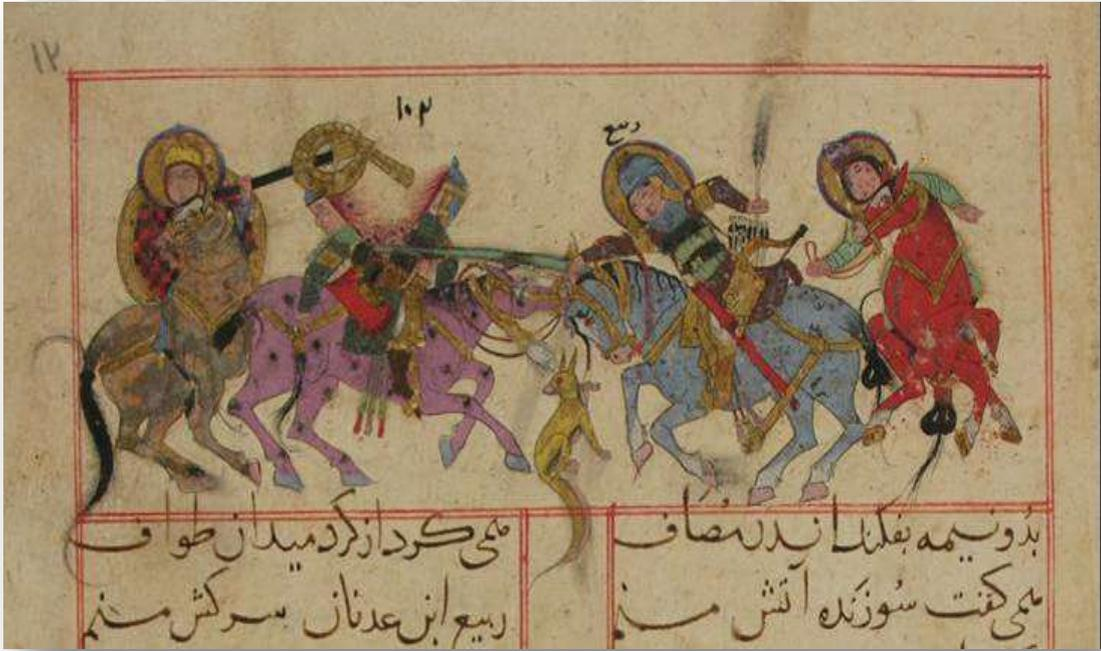 ١٢
١٠٢
ربیع
بدونیمه بفکند اندر مصاف همی کرد از کرد میدان طواف
همی کفت سوزنده آتش منم ربیع ابن عدنان سرکش منم